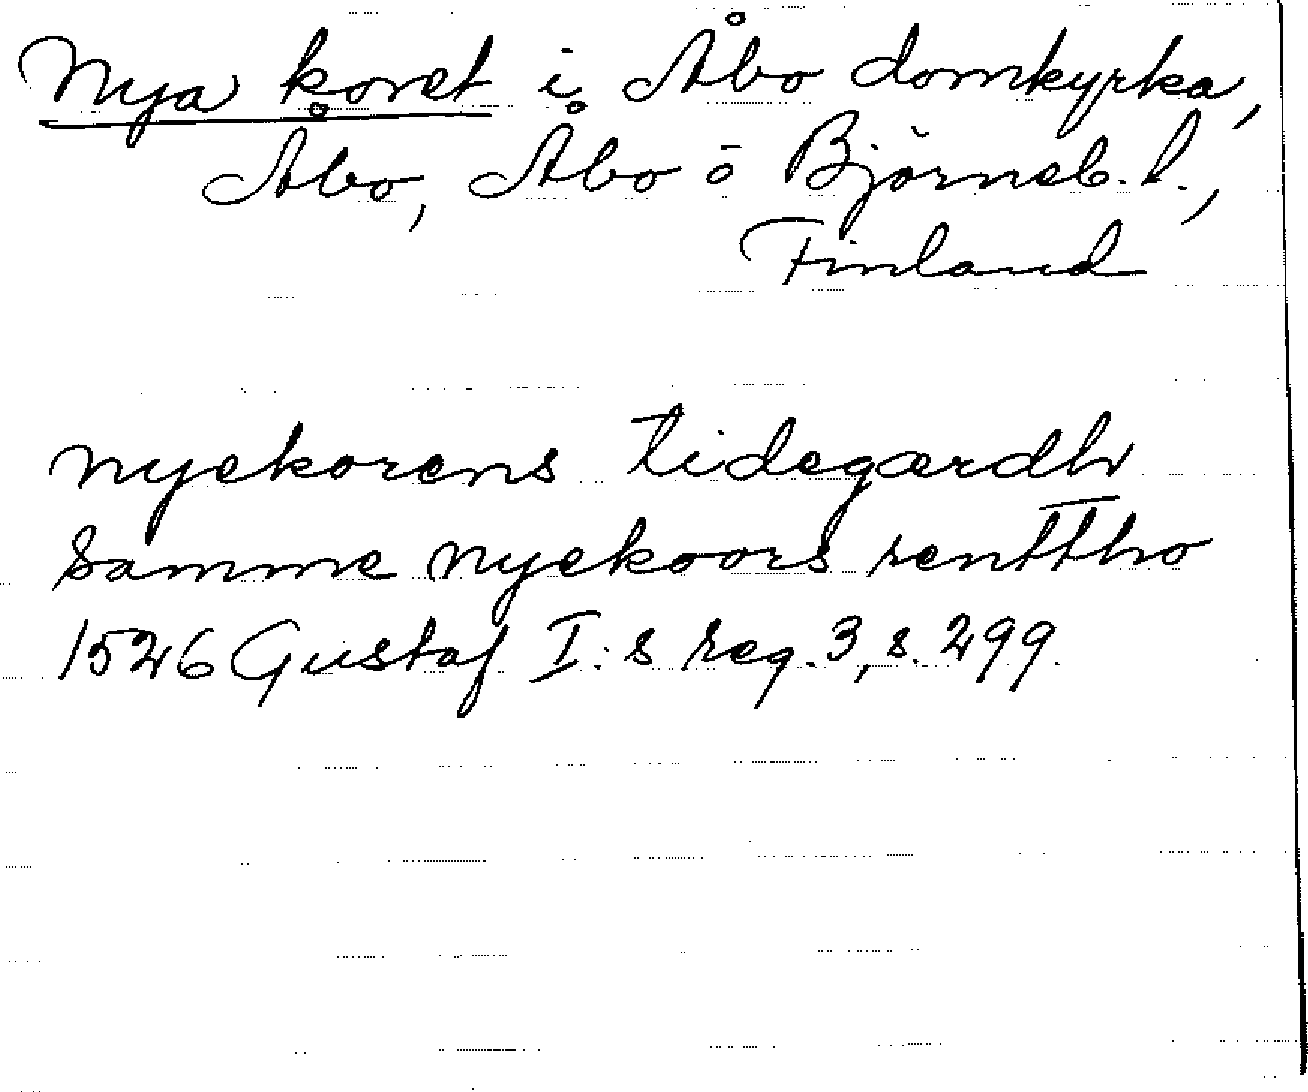 Nya koret i Åbo domkyrka,
Åbo, Åbo ö Björneb. l.,
Finland
nyekorens tidegærdh
Samme nyekoors renttho
1526 Gustaf I:s reg. 3, s. 299.